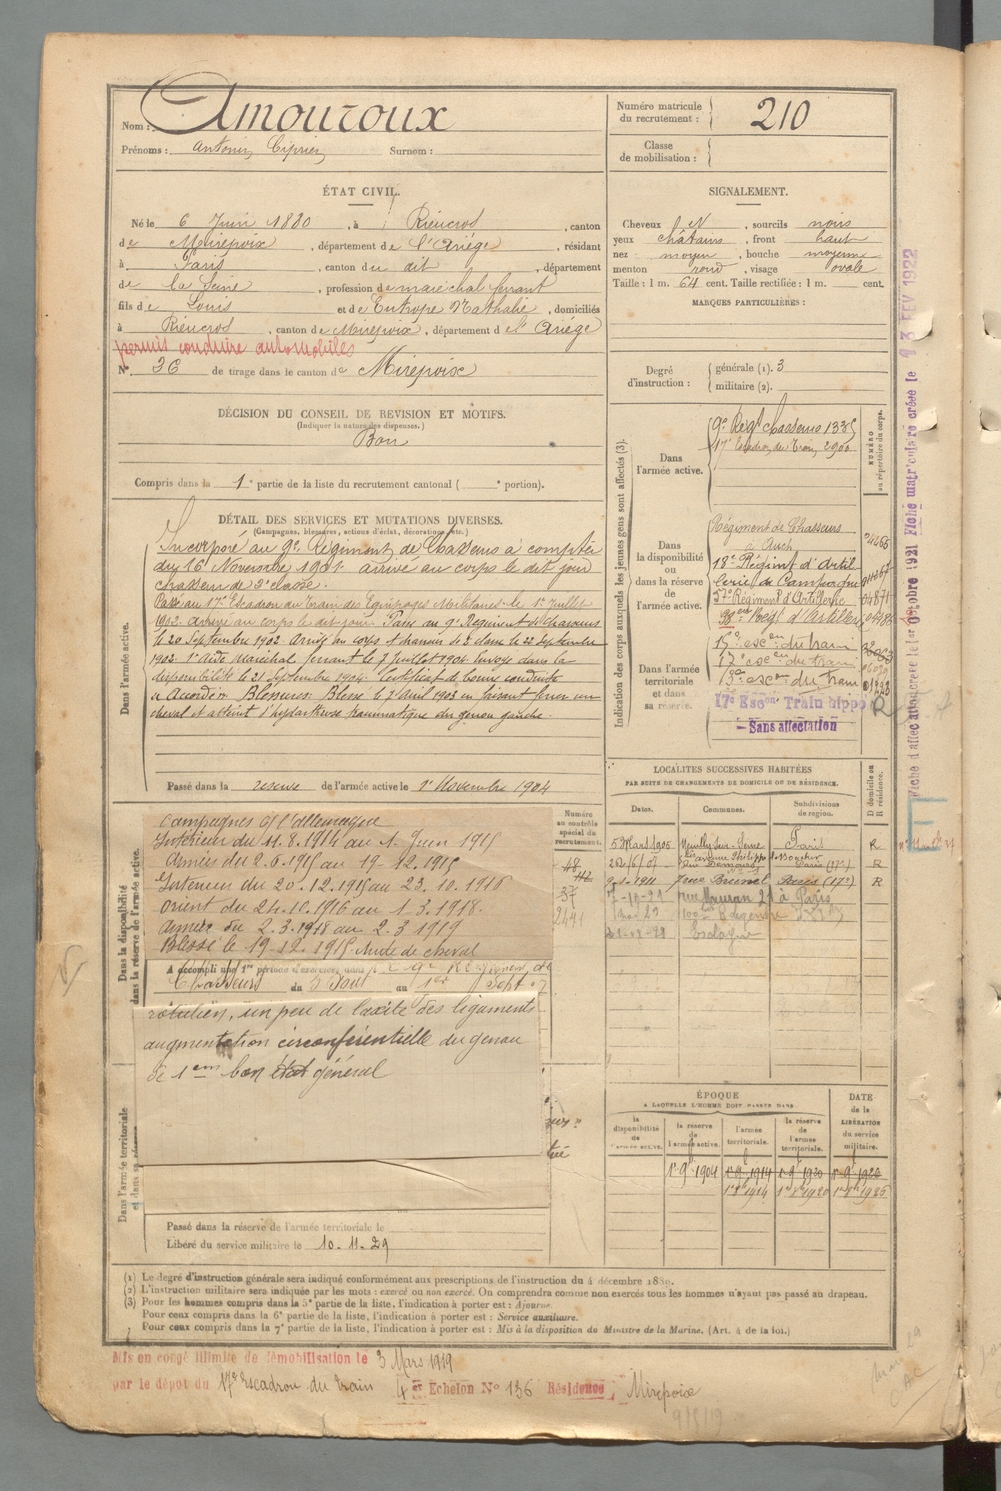 Nom : Amouroux
Prénoms : Antonin, Ciprien Surnom :
Numéro matricule du recrutement : 210
Classe de mobilisation :
ÉTAT CIVIL.
Né le 6 Juin 1880, à Rieucros, canton
de Mirepoix, département de l'Ariège, résidant
à Paris, canton du dit, département
de la Seine, profession de maréchal ferrant
fils de Louis et de Eutrope Nathalie, domiciliés
à Rieucros, canton de Mirepoix, département de l'Ariège
permis conduire automobiles
N° 36 de tirage dans le canton de Mirepoix
SIGNALEMENT.
Cheveux N, sourcils noirs
yeux châtains, front haut
nez moyen, bouche moyenne
menton rond, visage ovale
Taille : 1 m. 64 cent. Taille rectifiée : 1 m. cent.
MARQUES PARTICULIÈRES :
Degré d'instruction : générale (1). 3
militaire (2).
DÉCISION DU CONSEIL DE REVISION ET MOTIFS.
(Indiquer la nature des dispenses.)
Bon
Compris dans la 1e partie de la liste du recrutement cantonal ( e portion).
DÉTAIL DES SERVICES ET MUTATIONS DIVERSES.
(Campagnes, blessures, actions d'éclat, décorations, etc.)
Dans l'armée active.
Incorporé au 9e Régiment de Chasseurs à compter
du 16 Novembre 1901 arrivé au corps le dit jour
Chasseur de 2e classe.
Passé au 17e Escadron du Train des Équipages Militaires le 1er Juillet
1902. arrivé au corps le dit jour. Passé au 9e Régiment de Chasseurs
le 20 Septembre 1902. Arrivé au corps et chasseur de 2e classe le 22 Septembre
1902. 1er Aide Maréchal ferrant le 7 Juillet 1904. Envoyé dans la
disponibilité le 21 Septembre 1904. Certificat de bonne conduite
a Accordé. Blessures: Blessé le 7 Avril 1903 en faisant ferrer un
cheval et atteint d'hydarthrose traumatique du genou gauche.
Passé dans la reserve de l'armée active le 1er Novembre 1904
Indication des corps auxquels les jeunes gens sont affectés (3).
NUMÉRO au répertoire du corps.
Dans l'armée active.
9e Régt Chasseurs 1335
17e Escadron du Train, 2900
Dans la disponibilité ou dans la réserve de l'armée active.
Régiment de Chasseurs
à Auch
18e Régimt d'Artil
lerie de Campagne
57e Régiment d'Artillerie 04871
Dans l'armée territoriale et dans sa réserve.
15e escon du train
17e escon du train
18e escon du train
17e Escon Train hippo
R
Sans affectation
Fiche matriculaire créée le 13 FEV 1922
LOCALITÉS SUCCESSIVES HABITÉES
PAR SUITE DE CHANGEMENTS DE DOMICILE OU DE RÉSIDENCE.
Dates. Communes. Subdivisions de région. D domicile ou R résidence.
5 Mars 1905 Neuilly sur Seine Paris R
Paris (17e) R
9-1-1911 7 rue Brunel Paris (17e) R
Dans la disponibilité ou dans la réserve de l'armée active.
Numéro au contrôle spécial du recrutement.
37
2491
Campagnes C/ l'allemagne
Intérieur du 11.8.1914 au 1. Juin 1915
Armées du 2.6.1915 au 19-12.1915
Intérieur du 20.12.1915 au 23.10.1916
Orient du 24.10.1916 au 1.3.1918.
Armée du 2.3.1918 au 2.3 1919
Blessé le 19-12.1915. chute de cheval
A accompli une 1re période d'exercices dans le 9e Régiment de
Chasseurs du 5 Aout au 1er Sept
rotulien, un peu de laxité des ligaments
augmentation circonférentielle du genou
de 1 cm bon état général
Dans l'armée territoriale et dans sa réserve
Passé dans la réserve de l'armée territoriale le
Libéré du service militaire le 10.11.29
ÉPOQUE
A LAQUELLE L'HOMME DOIT PASSER DANS
la disponibilité de l'armée active. la réserve de l'armée active. l'armée territoriale. la réserve de l'armée territoriale.
DATE de la LIBÉRATION du service militaire.
1er 9bre 1904 1er 9bre 1914 1er 9bre 1920
(1) Le degré d'instruction générale sera indiqué conformément aux prescriptions de l'instruction du 4 décembre 1889.
(2) L'instruction militaire sera indiquée par les mots : exercé ou non exercé. On comprendra comme non exercés tous les hommes n'ayant pas passé au drapeau.
(3) Pour les hommes compris dans la 5e partie de la liste, l'indication à porter est : Ajourné.
Pour ceux compris dans la 6e partie de la liste, l'indication à porter est : Service auxiliaire.
Pour ceux compris dans la 7e partie de la liste, l'indication à porter est : Mis à la disposition du Ministre de la Marine. (Art. 4 de la loi.)
Mis en congé illimité de démobilisation le 3 Mars 1919
par le dépôt du 17e Escadron du train 4e Echelon N° 136 Résidence Mirepoix
9/8/19